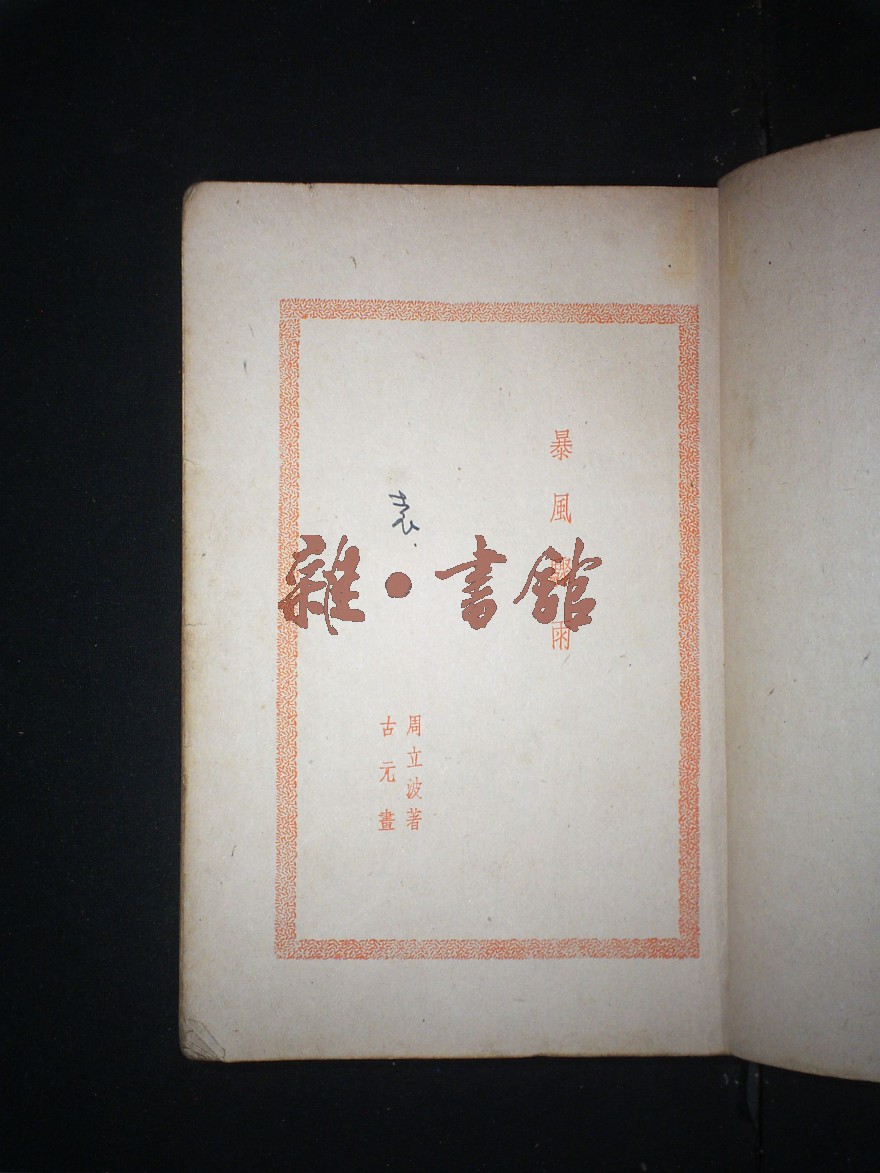 暴風驟雨
周立波著
古元畫
袁
雜·書館